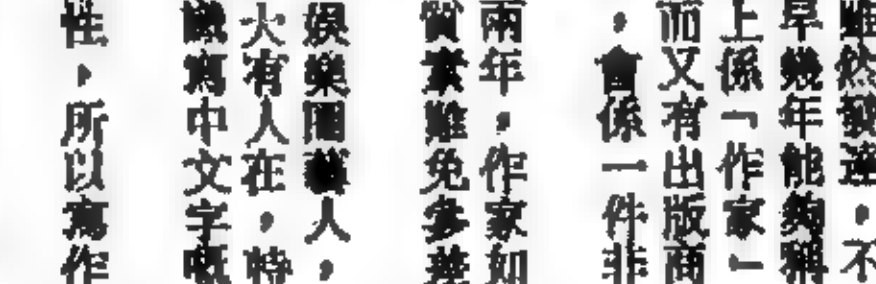 雖然發達,不
早幾年能夠稱
上係「作家」
而又有出版商
,會係一件非
兩年,作家如
質素難免參差
娛樂圈藝人,
大有人在,特
識寫中文字嘅
性,所以寫作